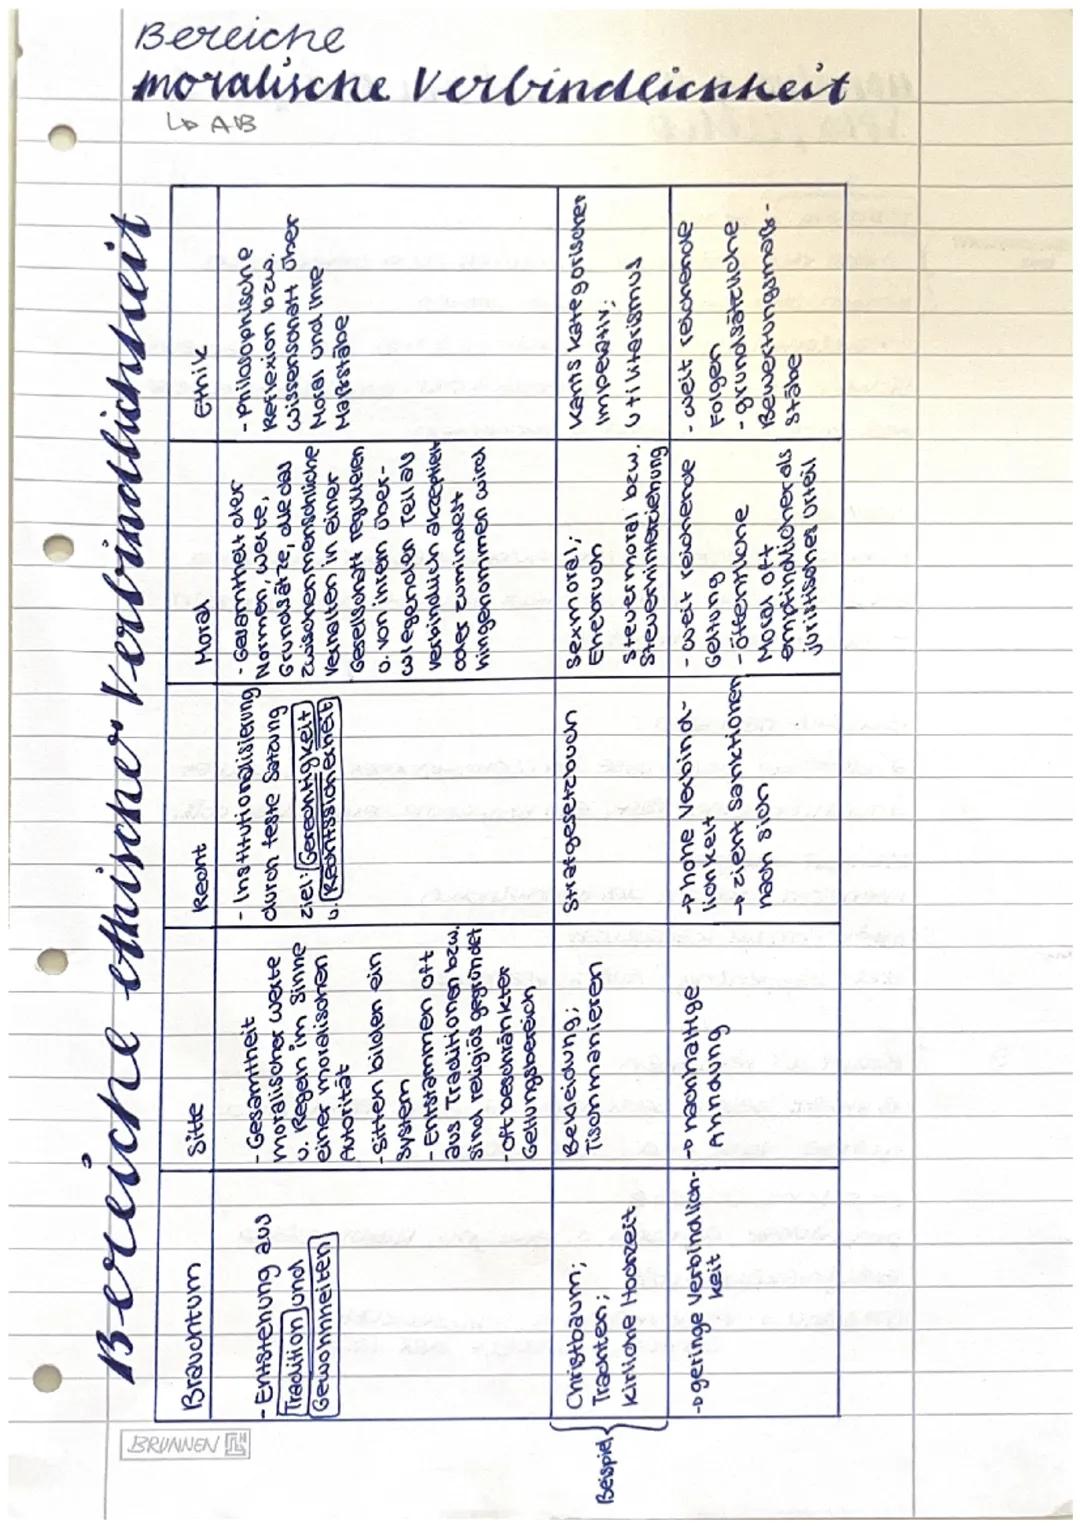 Bereiche
moralische Verbindlichkeit
↳ AB
Bereiche ethischer Verbindlichkeit
Brauchtum
- Entstehung aus
Tradition und
Gewohnheiten
Christbaum;
Trachten;
kirliche Hochzeit
→ geringe Verbindlich-
keit
Sitte
- Gesamtheit
moralischer Werte
u. Regeln im Sinne
einer moralischen
Autorität
- Sitten bilden ein
System
- Entstammen oft
aus Traditionen bzw.
sind religiös gegründet
- oft beschränkter
Geltungsbereich
Bekleidung;
Tischmanieren
→ nachhaltige
Ahndung
Recht
- Institutionalisierung
durch feste Satzung
Ziel: Gerechtigkeit
u. Rechtssicherheit
Strafgesetzbuch
→ hohe Verbind-
lichkeit
→ zieht Sanktionen
nach sich
Moral
- Gesamtheit der
Normen, Werte,
Grundsätze, die das
zwischenmenschliche
Verhalten in einer
Gesellschaft regulieren
u. von ihren über-
wiegenden Teil als
verbindlich akzeptiert
oder zumindest
hingenommen wird
Sexmoral;
Ehebruch
Steuermoral bzw.
Steuerhinterziehung
- weit reichende
Geltung
- öffentliche
Moral oft
empfindlicher als
juristisches Urteil
Ethik
- Philosophische
Reflexion bzw.
Wissenschaft über
Moral und ihre
Maßstäbe
Kants kategorischer
Imperativ;
Utiliterismus
- weit reichende
Folgen
- grundsätzliche
Bewertungsmaß-
stäbe
Beispiel
BRUNNEN